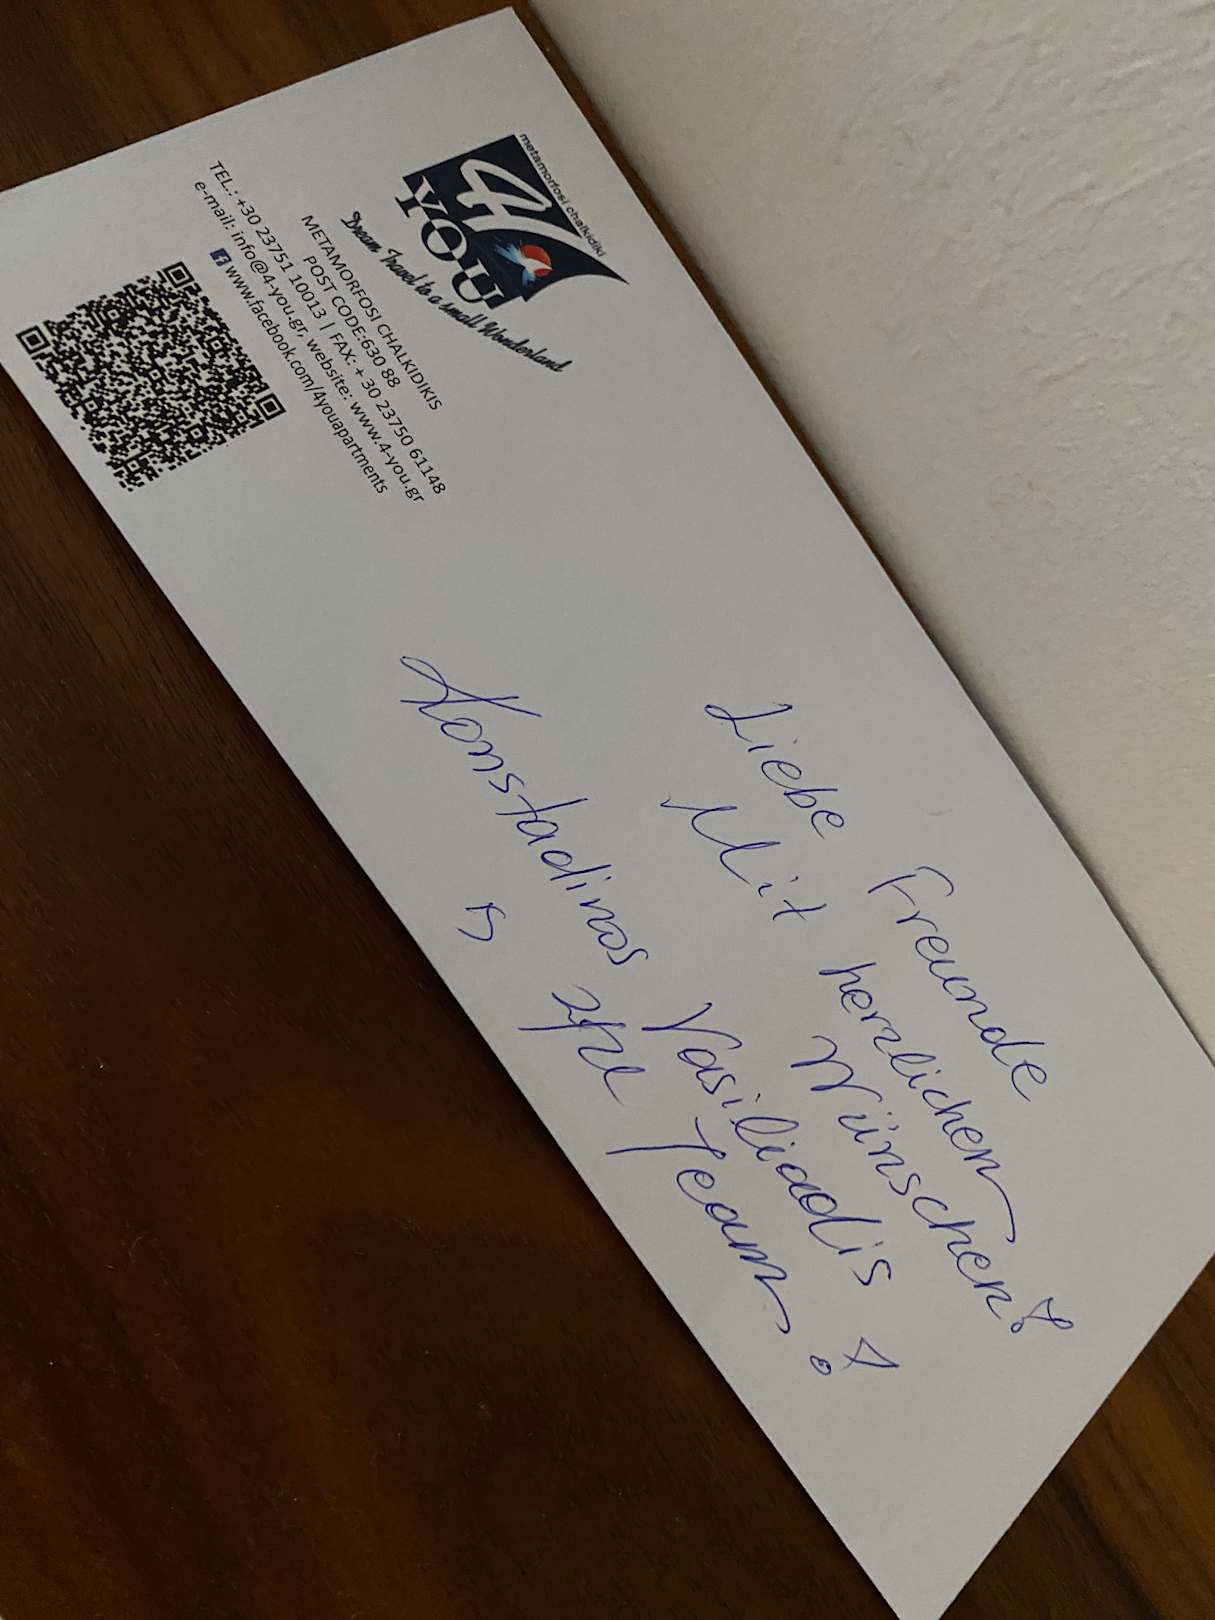 metamorfosi chalkidiki
4
YOU
Dream Travel to a small Wonderland
METAMORFOSI CHALKIDIKIS
POST CODE:630 88
TEL.: +30 23751 10013 | FAX: + 30 23750 61148
e-mail: info@4-you.gr, website: www.4-you.gr
www.facebook.com/4youapartments
Liebe Freunde
Mit herzlichen Wünschen!
Konstadinos Vasiliadis
Team!